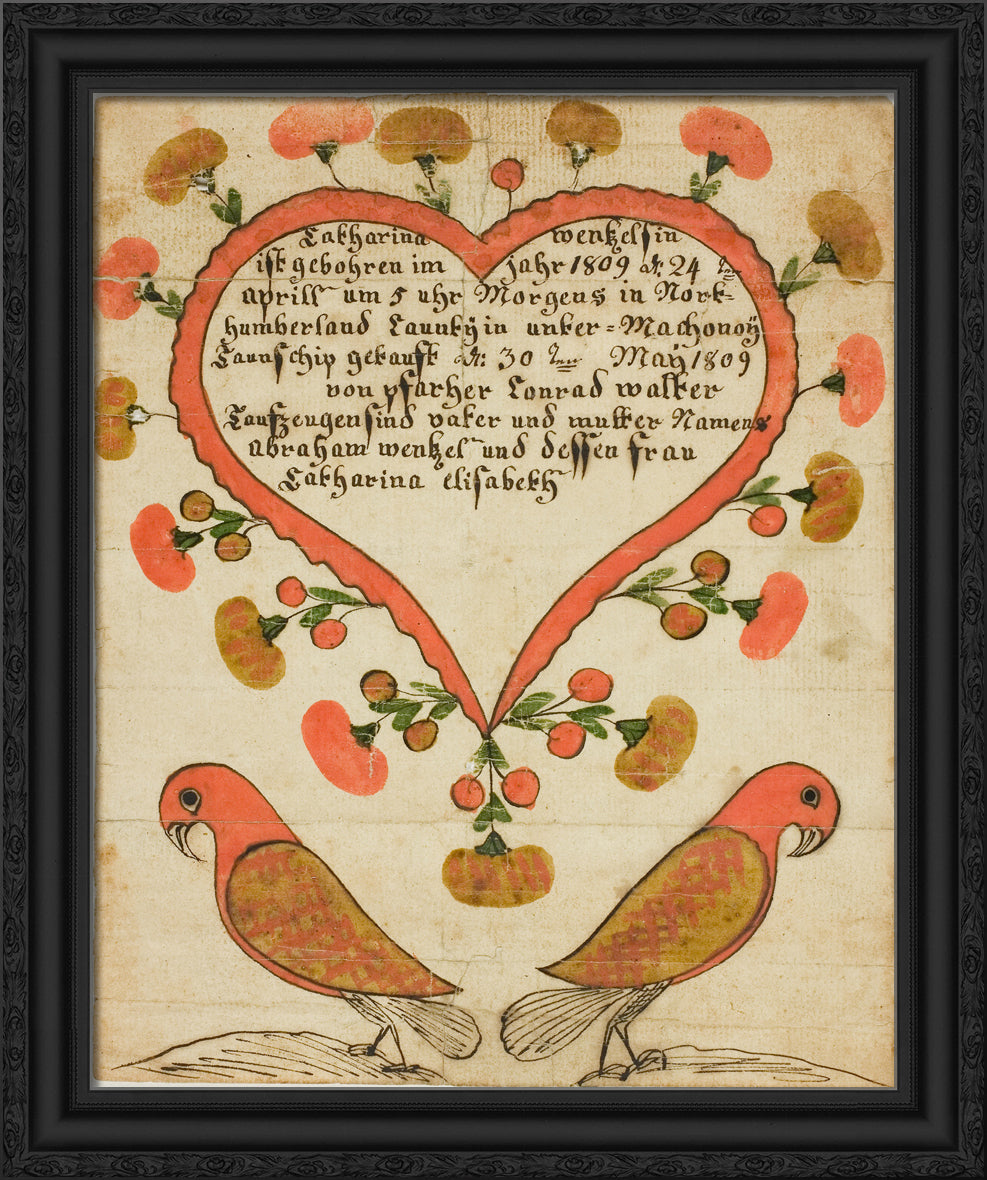 Catharina wentzelsin
ist gebohren im jahr 1809 d. 24 ten
aprill um 5 uhr Morgens in Nort-
humberland Caunty in unter=Machonoÿ
Taunschip getauft d. 30 ten Maÿ 1809
von pfarher Conrad walter
Taufzeugen sind vater und mutter Namens
Abraham wentzel und dessen frau
Catharina elisabeth